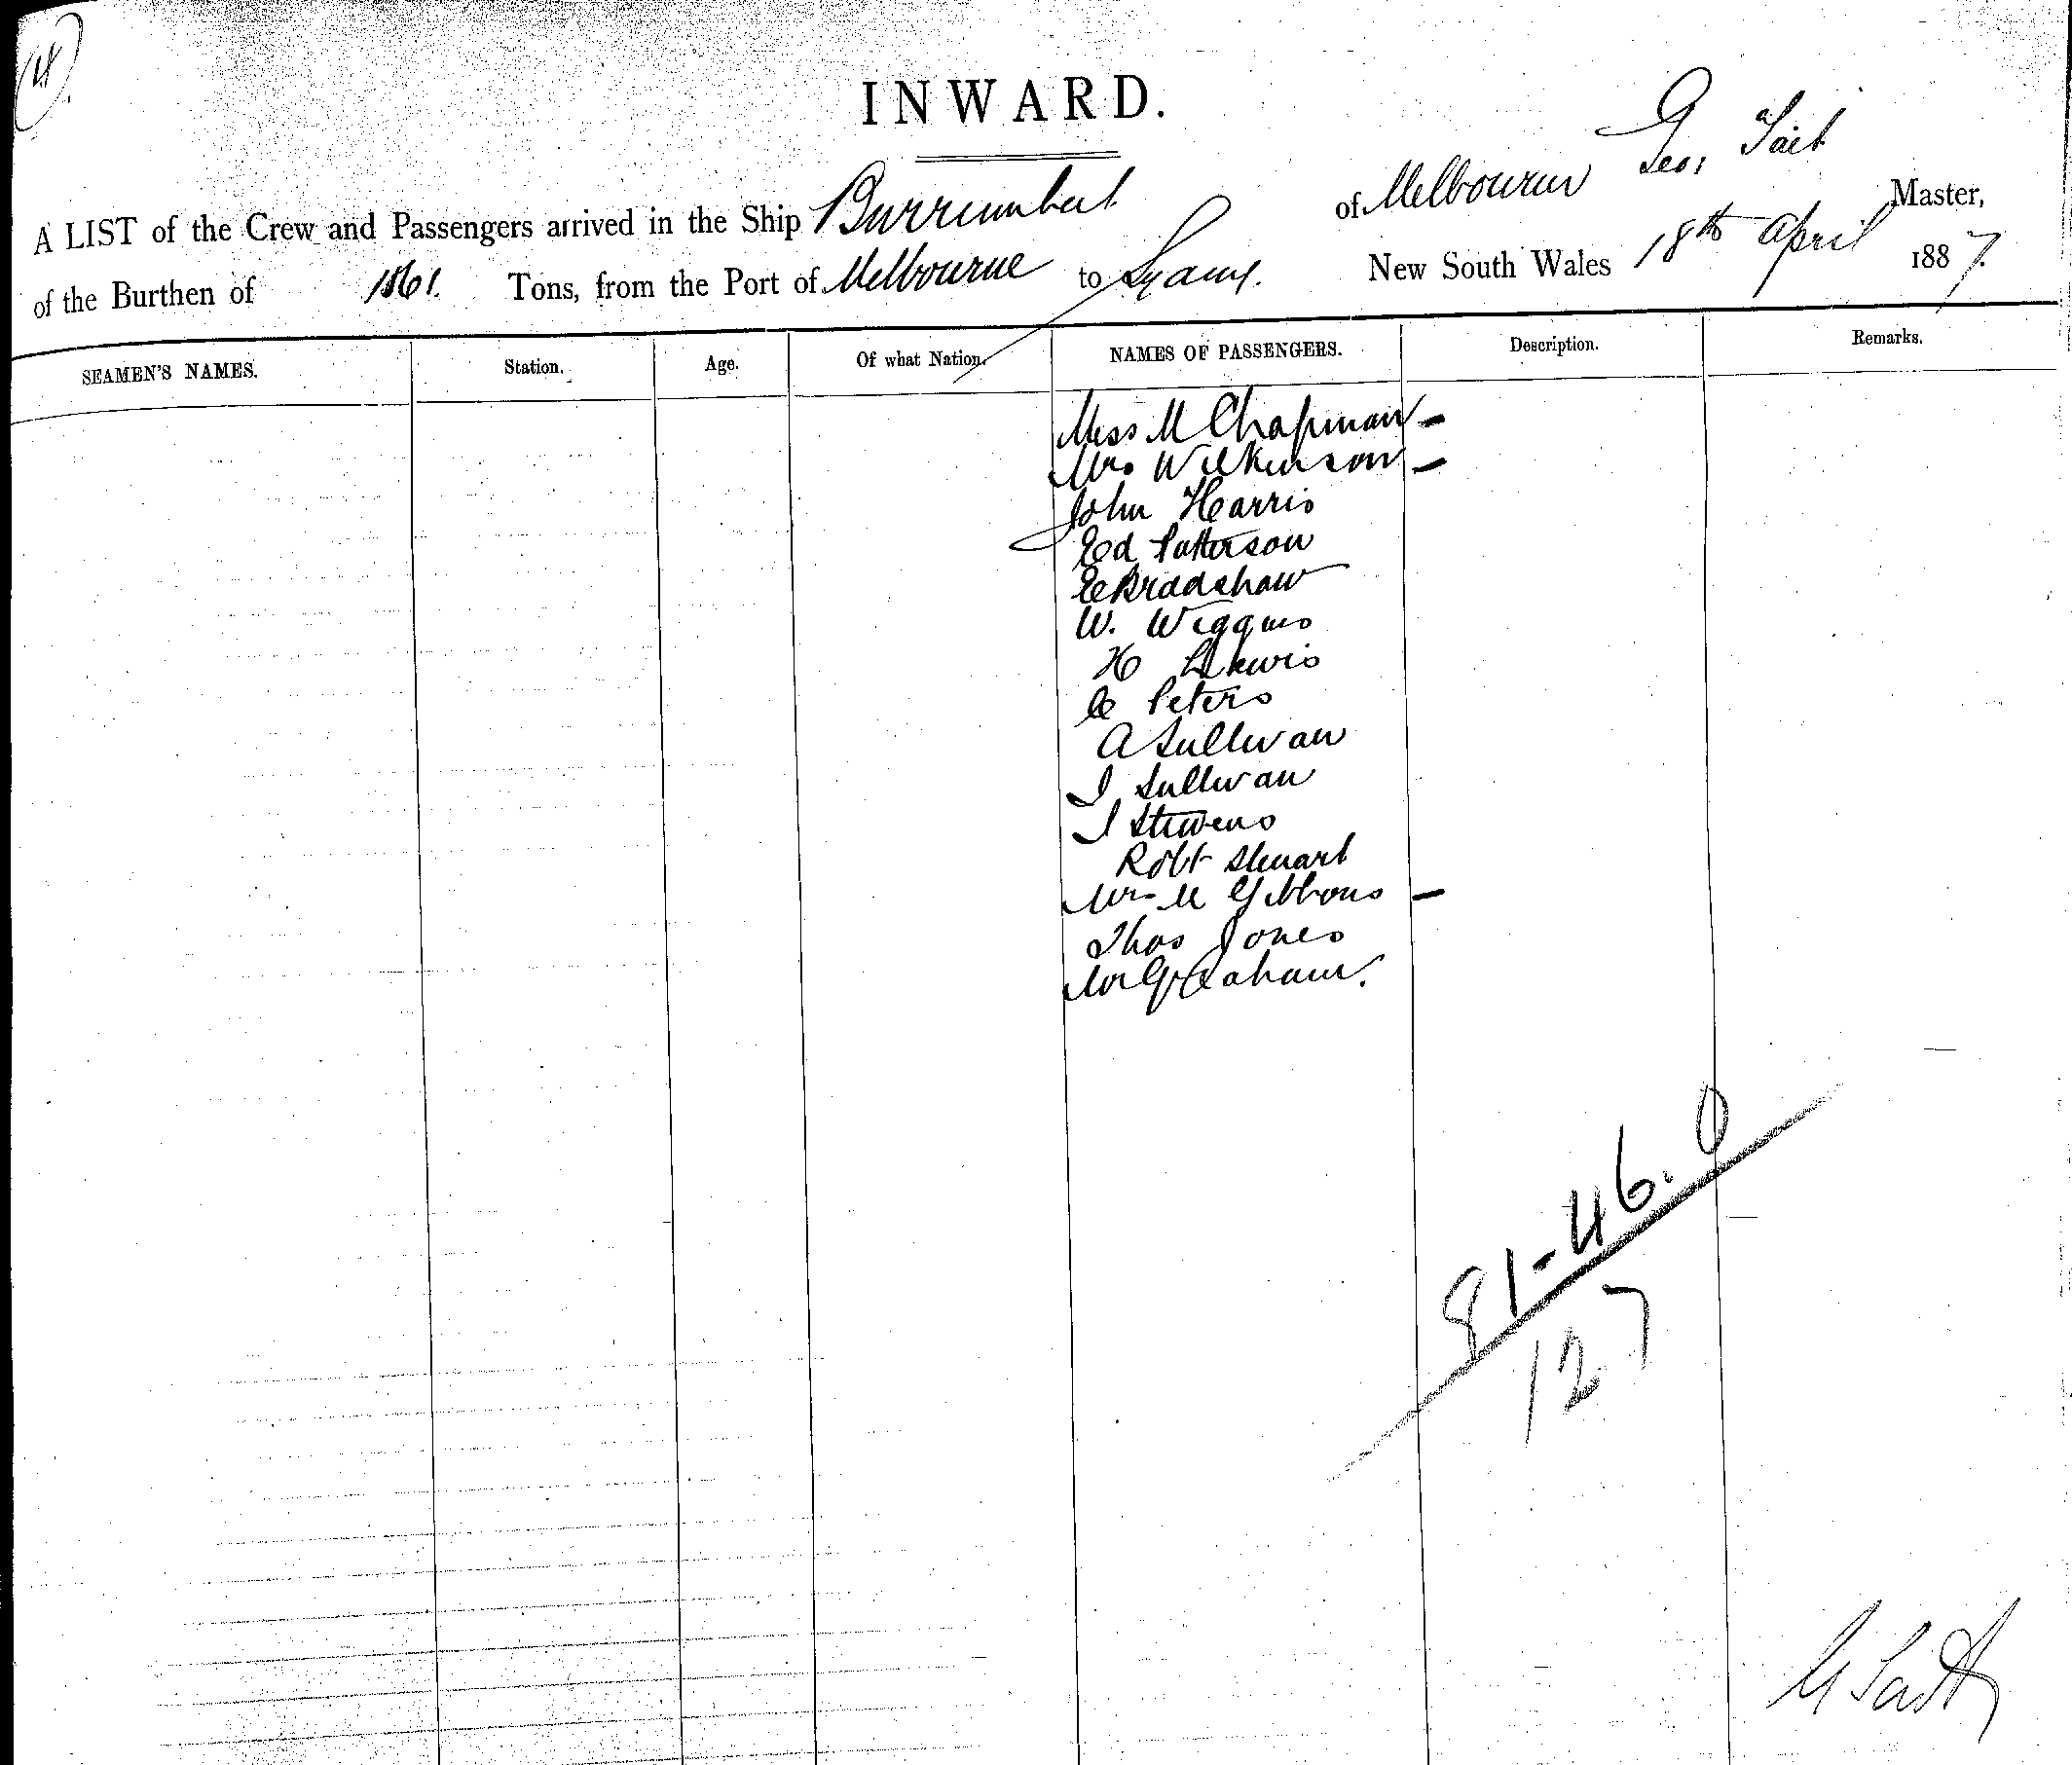 INWARD.
A LIST of the Crew and Passengers arrived in the Ship Burrumbeet of Melbourne Geo. Tait Master,
of the Burthen of 1861. Tons, from the Port of Melbourne to Sydney. New South Wales 18th April 1887.
SEAMEN'S NAMES. Station. Age. Of what Nation. NAMES OF PASSENGERS. Description. Remarks.
Miss M Chapman -
Mrs Wilkinson -
John Harris
Ed Patterson
E Bradshaw
W. Wiggins
H Lewis
C Peters
A Sullivan
J Sullivan
J Stevens
Robt Stewart
Mrs M Gibbons -
Thos Jones
Mr Graham.
81-46.0
127
G Tait